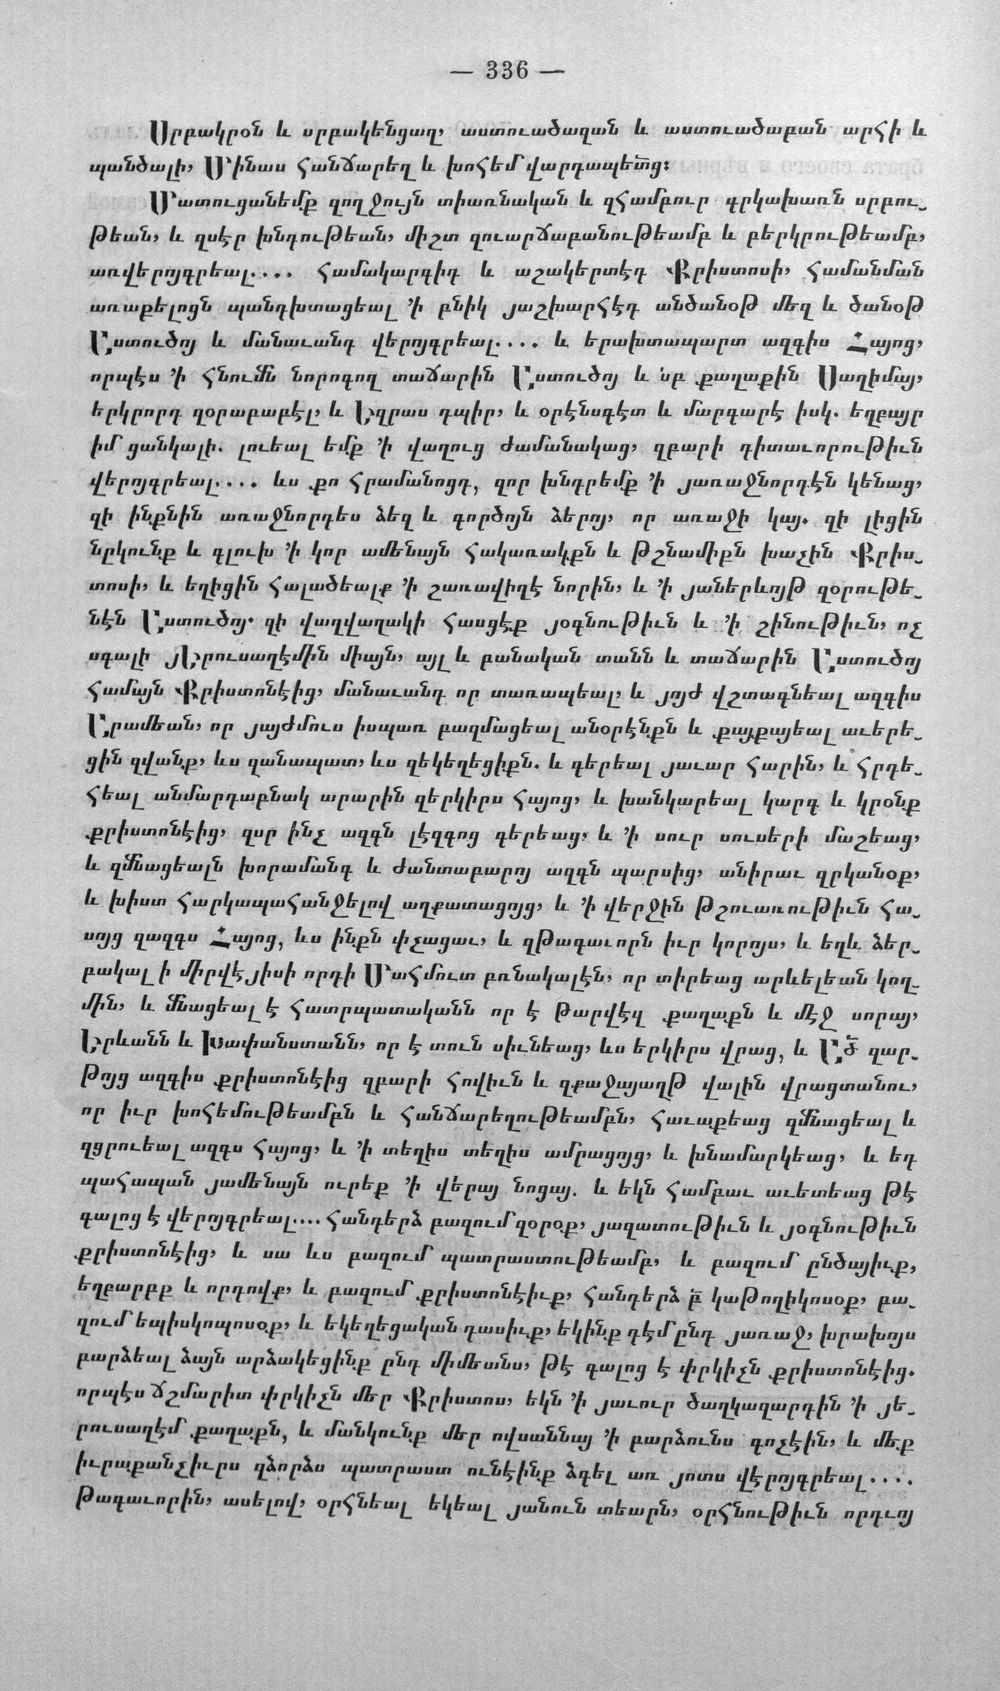 — 336 —
Սրբակրօն և սրբակենցաղ, աստուածազան և աստուածաբան արհի և
պանծալի, Մինաս հանճարեղ և խոհեմ վարդապետց:
Մատուցանեմք զողջոյն տիառնական և զհամբուր գրկախառն սրբու֊
թեան, և զսէր խնդութեան, միշտ զուարճաբանութեամբ և բերկրութեամբ,
առվերոյգրեալ.... համակարգիդ և աշակերտէդ Քրիստոսի, համանման
առաքելոցն պանդխտացեալ ՚ի բնիկ յաշխարհէդ անծանօթ մեզ և ծանօթ
Աստուծոյ և մանաւանդ վերոյգրեալ.... և երախտապարտ ազգիս Հայոց,
որպէս ՚ի հնումն նորոգող տաճարին Աստուծոյ և սբ քաղաքին Սաղիմայ,
երկրորդ զօրաբաբէլ, և Եզրաս դպիր, և օրէնսգէտ և մարգարէ իսկ. եղբայր
իմ ցանկալի. լուեալ եմք ՚ի վաղուց ժամանակաց, զբարի դիտաւորութիւն
վերոյգրեալ.... ևս քո հրամանոցդ, զոր խնդրեմք ՚ի յառաջնորդէն կենաց,
զի ինքնին առաջնորդես ձեզ և գործոյն ձերոյ, որ առաջի կայ. զի լիցին
նրկունք և գլուխ ՚ի կոր ամենայն հակառակքն և թշնամիքն խաչին Քրիս֊
տոսի, և եղիցին հալածեալք ՚ի շառավիղէ նորին, և ՚ի յաներևոյթ զօրութե֊
նէն Աստուծոյ. զի վաղվաղակի հասցէք յօգնութիւն և ՚ի շինութիւն, ոչ
սգալի յԵրուսաղէմին միայն, այլ և բանական տանն և տաճարին Աստուծոյ
համայն Քրիստոնէից, մանաւանդ որ տառապեալ, և յոյժ վշտագնեալ ազգիս
Արամեան, որ յայժմուս իսպառ բազմացեալ անօրէնքն և քայքայեալ աւերե֊
ցին զվանք, ևս զանապատ, ևս զեկեղեցիքն. և գերեալ յաւար հարին, և հրդե֊
հեալ անմարդաբնակ արարին զերկիրս հայոց, և խանկարեալ կարգ և կրօնք
քրիստոնէից, զսր ինչ ազգն լէզգոց գերեաց, և ՚ի սուր սուսերի մաշեաց,
և զմնացեալն խորամանգ և ժանտաբարոյ ազգն պարսից, անիրաւ զրկանօք,
և խիստ հարկապահանջելով աղքատացոյց, և ՚ի վերջին թշուառութիւն հա֊
սոյց զազգս Հայոց, ևս ինքն փչացաւ, և զթագաւորն իւր կորոյս, և եղև ձեր֊
բակալ ի միրվէյիսի որդի Մահմուտ բռնակալէն, որ տիրեաց արևելեան կող֊
մին, և մնացեալ է հատրպատականն որ է թարվէզ քաղաքն և մէջ սորայ,
Երևանն և Խափանստանն, որ է տուն սիւնեաց, ևս երկիրս վրաց, և Ած զար֊
թոյց ազգիս քրիստոնէից զբարի հովիւն և զքաջայաղթ վալին վրացտանու,
որ իւր խոհեմութեամբն և հանճարեղութեամբն, հաւաքեաց զմնացեալ և
զցրուեալ ազգս հայոց, և ՚ի տեղիս տեղիս ամրացոյց, և խնամարկեաց, և եդ
պահապան յամենայն ուրեք ՚ի վերայ նոցայ. և եկն համբաւ աւետեաց թէ
գալոց է վերոյգրեալ.... հանդերձ բազում զօրօք, յազատութիւն և յօգնութիւն
քրիստոնէից, և սա ևս բազում պատրաստութեամբ, և բազում ընծայիւք,
եղբարբք և որդովք, և բազում քրիստոնէիւք, հանդերձ բ կաթողիկոսօք, բա֊
զում եպիսկոպոսօք, և եկեղեցական դասիւք, եկինք դէմ ընդ յառաջ, խրախոյս
բարձեալ ձայն արձակեցինք ընդ միմեանս, թէ գալոց է փրկիչն քրիստոնէից.
որպէս ճշմարիտ փրկիչն մեր Քրիստոս, եկն ՚ի յաւուր ծաղկազարդին ՚ի յե֊
րուսաղէմ քաղաքն, և մանկունք մեր ովսաննայ ՚ի բարձունս գոչէին, և մեք
իւրաքանչիւրս զձորձս պատրաստ ունէինք ձգել առ յոտս վէրոյգրեալ....
Թագաւորին, ասելով, օրհնեալ եկեալ յանուն տեառն, օրհնութիւն որդւոյ